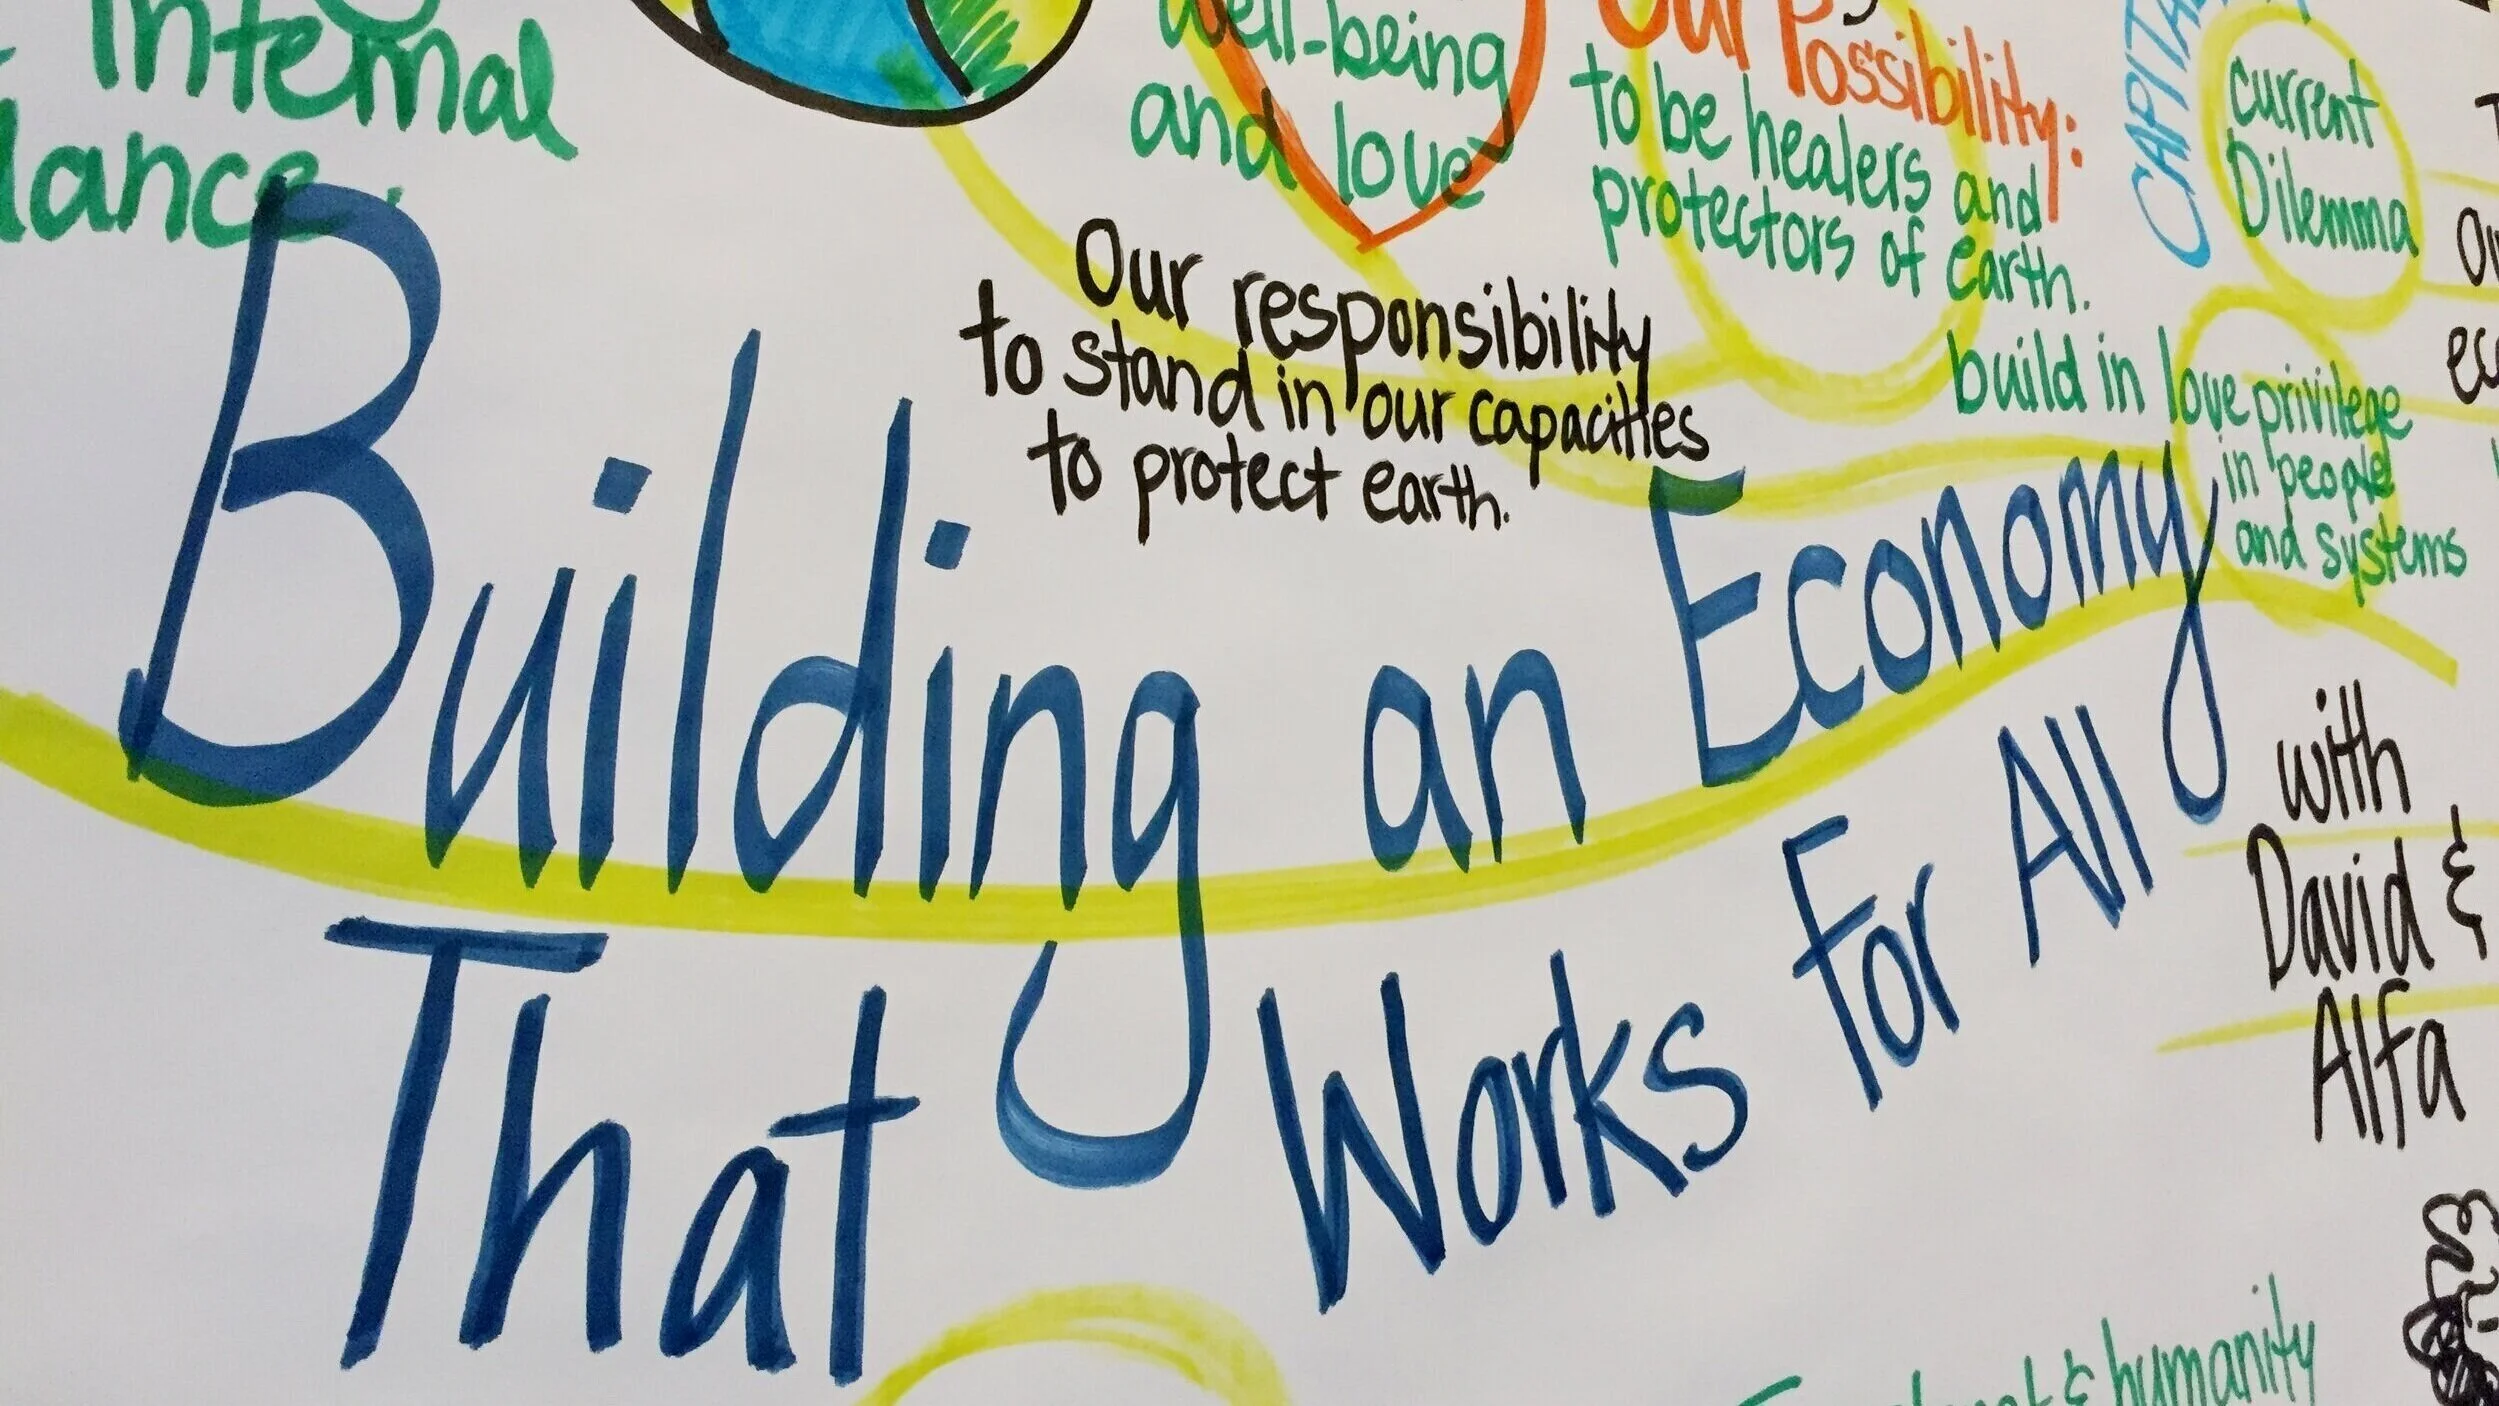 Internal
well-being
and love
Our Possibility:
to be healers and
protectors of earth.
current
Dilemma
Our responsibility
to stand in our capacities
to protect earth.
build in love privilege
in people
and systems
Building an Economy
That Works For All
with
David &
Alfa
& humanity